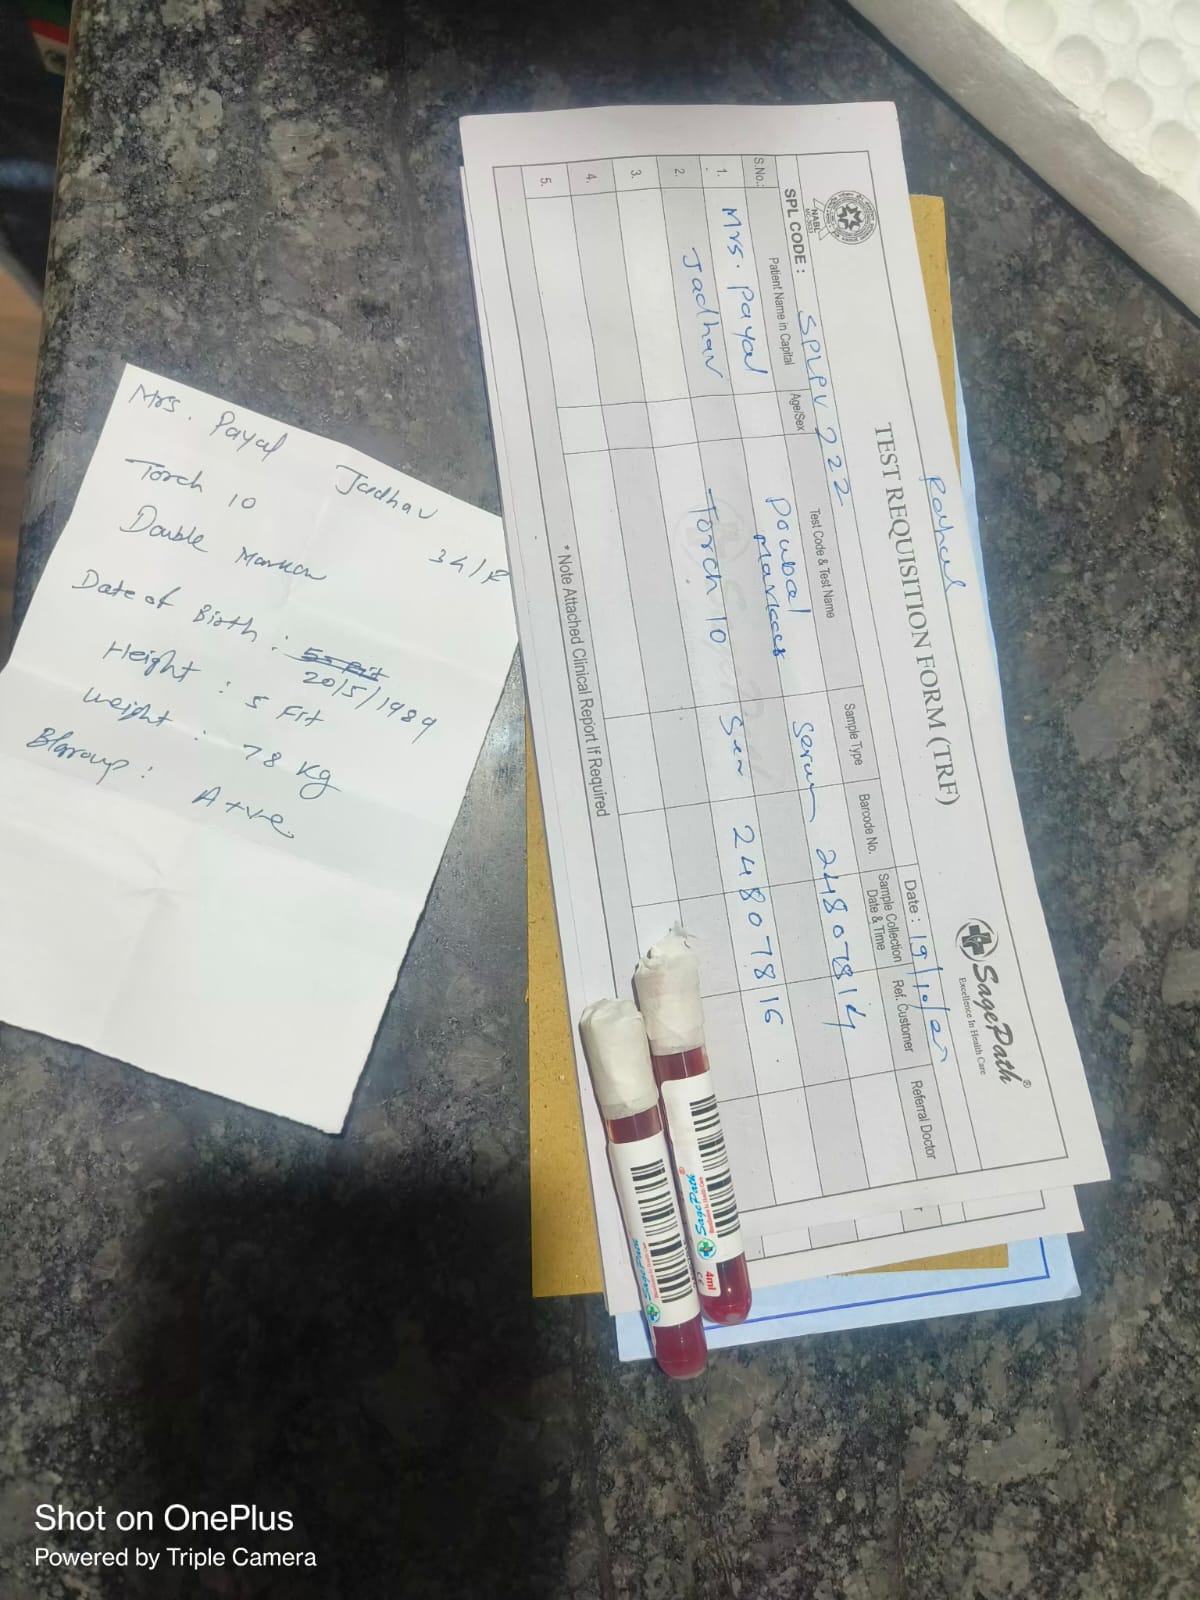 Rahul
TEST REQUISITION FORM (TRF)
SagePath®
Excellence In Health Care
NABL
SPL CODE : SPLPV 222
Date : 19/10/
S.No.: Patient Name in Capital Age/Sex Test Code & Test Name Sample Type Barcode No. Sample Collection Date & Time Ref. Customer Referral Doctor
1. Mrs. Payal Doubal Markers Serum 24807814
2. Jadhav Torch 10 Ser 24807816
3.
4.
5.
* Note Attached Clinical Report If Required
Mrs. Payal Jadhav 34/F
Torch 10
Double Marker
Date of Birth : 20/5/1989
Height : 5 Fit
Weight : 78 Kg
BGroup : A+ve
SagePath
4ml
CE
SagePath
Shot on OnePlus
Powered by Triple Camera